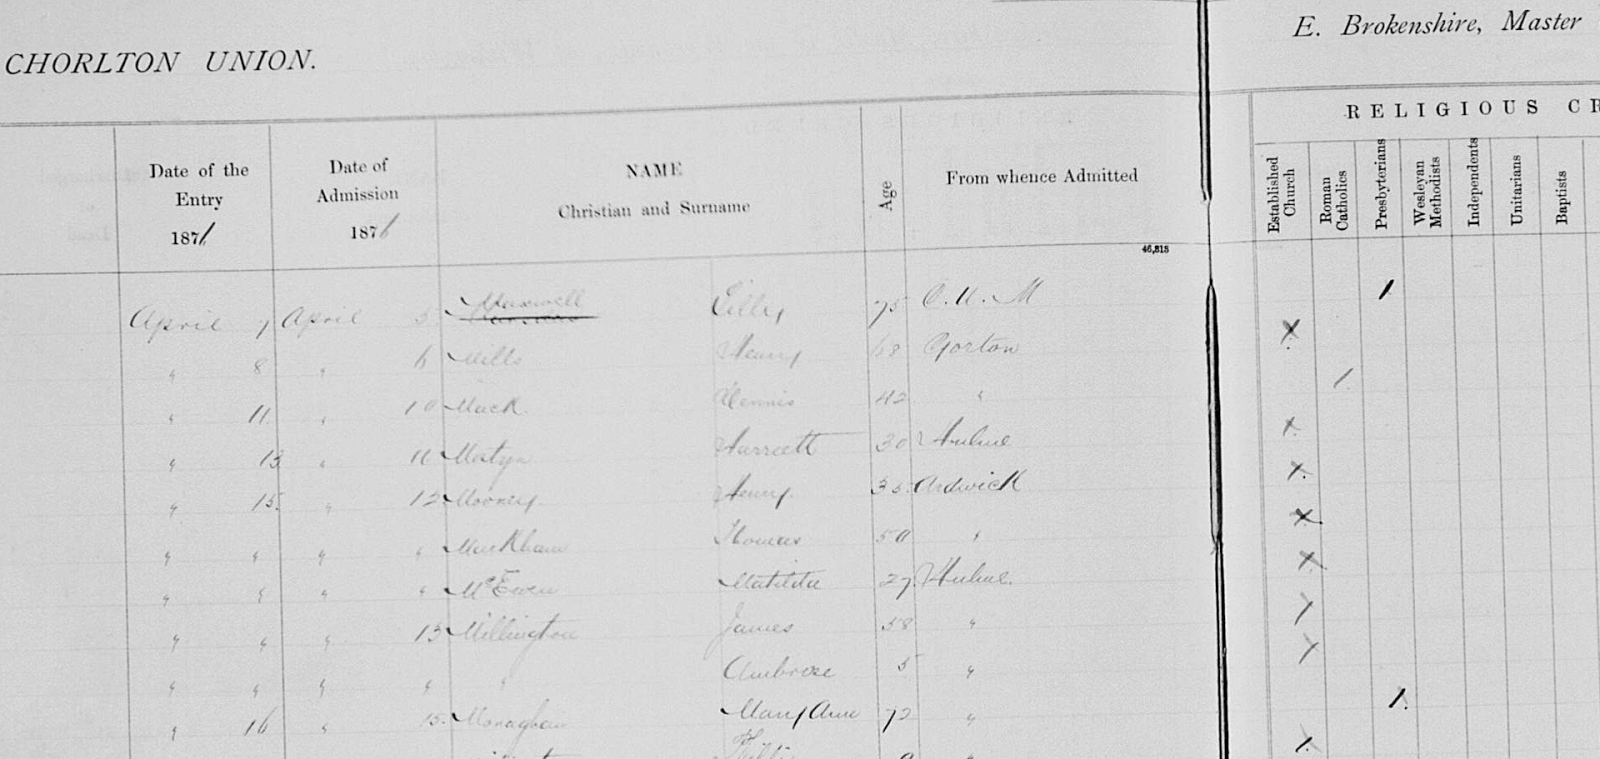 CHORLTON UNION.
E. Brokenshire, Master
RELIGIOUS CR
Date of the Entry 1871
Date of Admission 1871
NAME
Christian and Surname
Age
From whence Admitted
46,818
Established Church
Roman Catholics
Presbyterians
Wesleyan Methodists
Independents
Unitarians
Baptists
April 7 April 5 Maxwell 75 C. U. M
" 8 " 6 Mills Henry 68 Gorton
" 11 " 10 Mack Dennis 42 "
" 13 " 11 Harriett 30 Hulme
" 15. " 12 Mooney Henry 35 Ardwick
" " " " Markham Thomas 50 "
" " " " McEwen Matilda 27 Hulme.
" " " 13 Millington James 58 "
" " " " " Ambrose 5 "
" 16 " 15. Monaghan Mary Ann 72 "